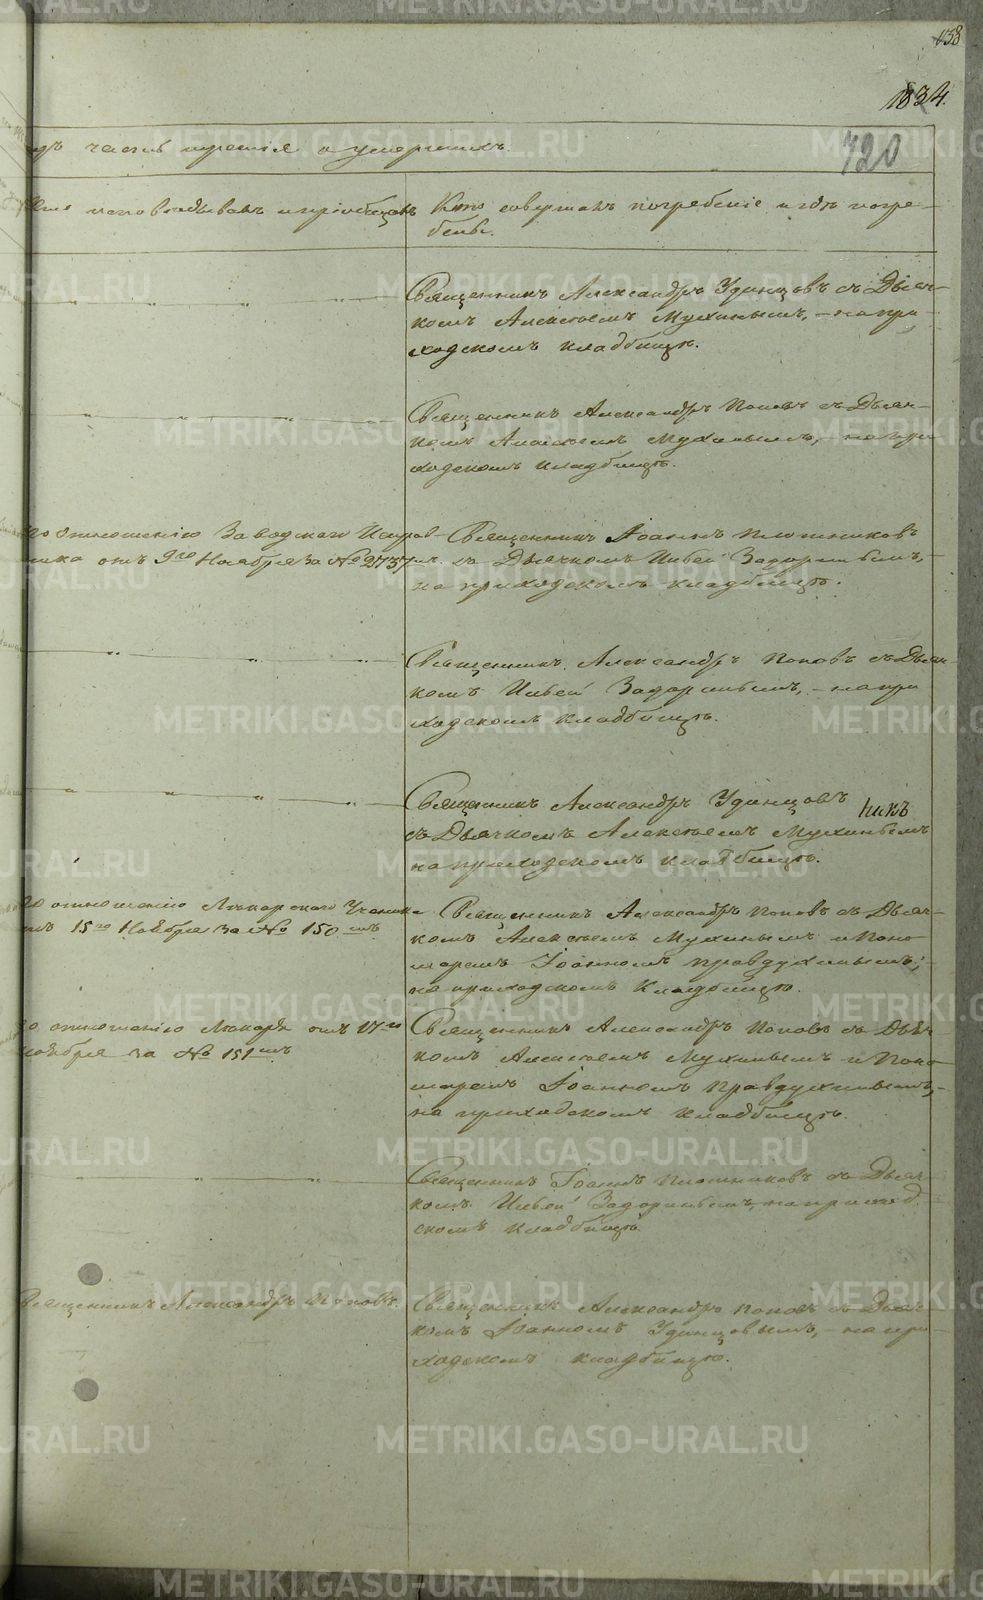 158
1834.
720
часть третія о умершихъ.
Кто исповѣдывалъ и пріобщалъ
Кто совершалъ погребеніе и гдѣ погре-
бены.
Священникъ Александръ Удинцовъ съ Дьяч-
комъ Алексѣемъ Мухинымъ, - на при-
ходскомъ кладбищѣ.
Священникъ Александръ Поповъ съ Дьяч-
комъ Алексѣемъ Мухинымъ, - на при-
ходскомъ кладбищѣ.
по отношенію Заводскаго Исправ-
ника отъ 9го Ноября за № 2737мъ.
Священникъ Іоаннъ Плотниковъ
съ Дьячкомъ Ильей Задоринымъ, -
на приходскомъ кладбищѣ.
Священникъ Александръ Поповъ съ Дьяч-
комъ Ильей Задоринымъ, - на при-
ходскомъ кладбищѣ.
Священникъ Александръ Удинцовъ
никъ
съ Дьячкомъ Алексѣемъ Мухинымъ
на приходскомъ кладбищѣ.
по отношенію Лѣкарскаго Ученика
отъ 15го Ноября за № 150мъ
Священникъ Александръ Поповъ съ Дьяч-
комъ Алексѣемъ Мухинымъ и Поно-
маремъ Іоанномъ Правдухинымъ; -
на приходскомъ кладбищѣ.
по отношенію Лѣкаря отъ 17го
Ноября за № 151мъ
Священникъ Александръ Поповъ съ Дьяч-
комъ Алексѣемъ Мухинымъ и Поно-
маремъ Іоанномъ Правдухинымъ, -
на приходскомъ кладбищѣ.
Священникъ Іоаннъ Плотниковъ съ Дьяч-
комъ Ильей Задоринымъ, на приход-
скомъ кладбищѣ.
Священникъ Александръ Поповъ.
Священникъ Александръ Поповъ съ Дьяч-
комъ Іоанномъ Удинцовымъ, - на при-
ходскомъ кладбищѣ.
METRIKI.GASO-URAL.RU